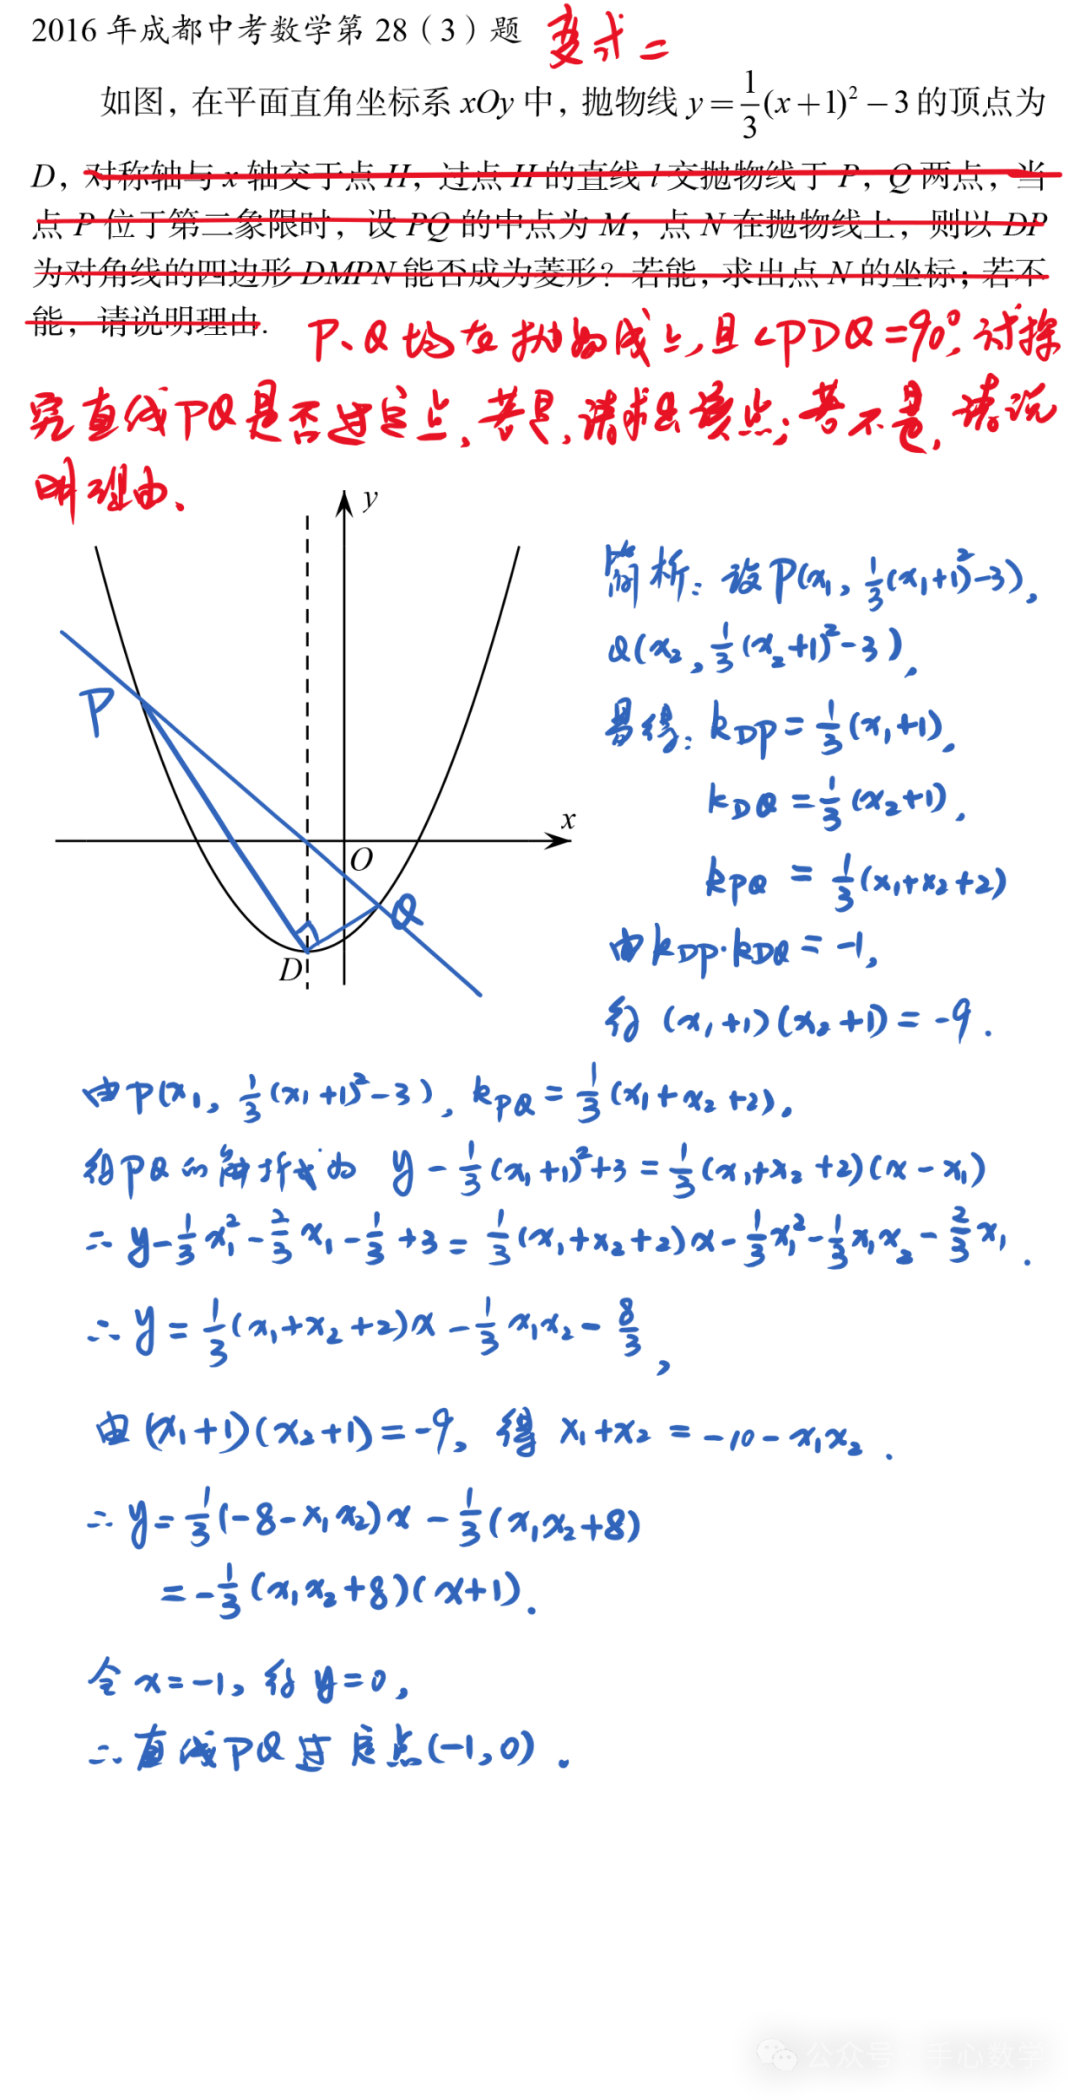 2016 年成都中考数学第 28（3）题 变式二
如图，在平面直角坐标系 xOy 中，抛物线 y=\frac{1}{3}(x+1)²－3 的顶点为
D，对称轴与 x 轴交于点 H，过点 H 的直线 l 交抛物线于 P，Q 两点，当
点 P 位于第二象限时，设 PQ 的中点为 M，点 N 在抛物线上，则以 DP
为对角线的四边形 DMPN 能否成为菱形？若能，求出点 N 的坐标；若不
能，请说明理由．
P、Q 均在抛物线上，且∠PDQ=90°，试探
究直线PQ是否过定点，若是，请求出该点；若不是，请说
明理由、
y
x
O
P
Q
D
简析：设P(x₁, \frac{1}{3}(x₁+1)²-3)，
Q(x₂, \frac{1}{3}(x₂+1)²-3)，
易得：k_{DP}=\frac{1}{3}(x₁+1)，
k_{DQ}=\frac{1}{3}(x₂+1)，
k_{PQ}=\frac{1}{3}(x₁+x₂+2)
由k_{DP}·k_{DQ}=-1，
得 (x₁+1)(x₂+1)=-9．
由P(x₁, \frac{1}{3}(x₁+1)²-3)，k_{PQ}=\frac{1}{3}(x₁+x₂+2)，
得PQ的解析式为 y-\frac{1}{3}(x₁+1)²+3=\frac{1}{3}(x₁+x₂+2)(x-x₁)
∴ y-\frac{1}{3}x₁²-\frac{2}{3}x₁-\frac{1}{3}+3=\frac{1}{3}(x₁+x₂+2)x-\frac{1}{3}x₁²-\frac{1}{3}x₁x₂-\frac{2}{3}x₁．
∴ y=\frac{1}{3}(x₁+x₂+2)x-\frac{1}{3}x₁x₂-\frac{8}{3}，
由(x₁+1)(x₂+1)=-9，得 x₁+x₂=-10-x₁x₂．
∴ y=\frac{1}{3}(-8-x₁x₂)x-\frac{1}{3}(x₁x₂+8)
=-\frac{1}{3}(x₁x₂+8)(x+1)．
令x=-1，得y=0，
∴直线PQ过定点(-1,0)．
公众号 手心数学